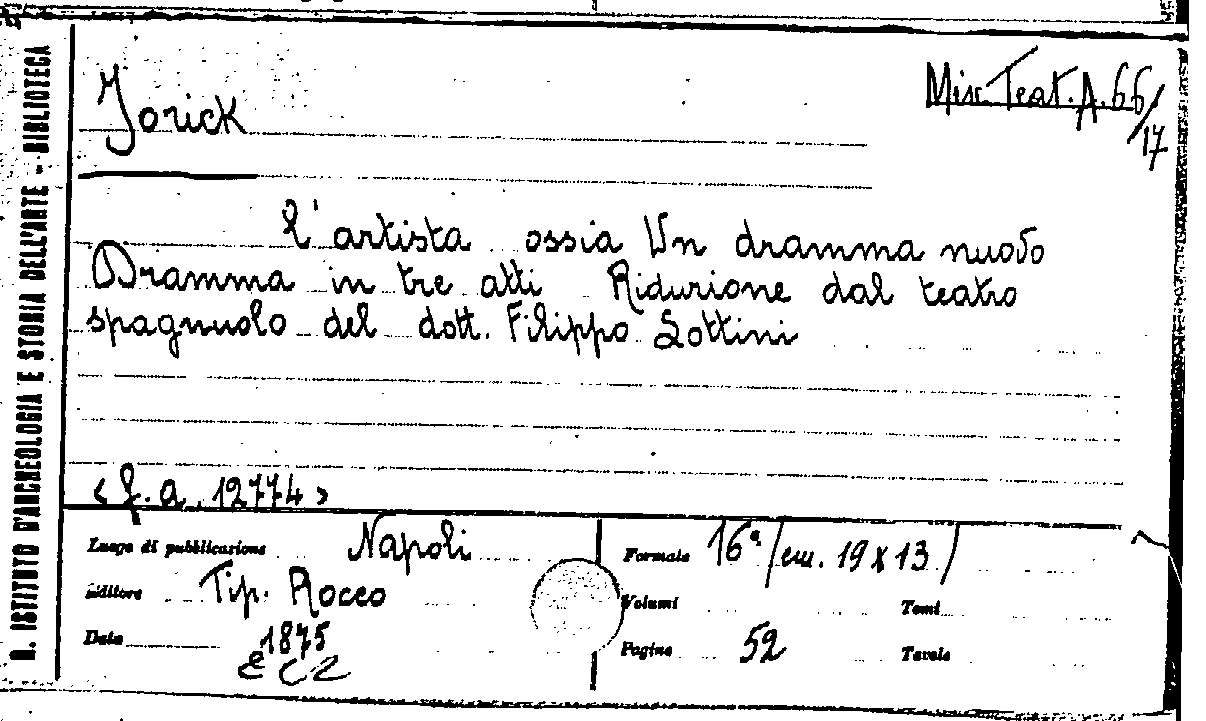 R. ISTITUTO D'ARCHEOLOGIA E STORIA DELL'ARTE - BIBLIOTECA
Jorick
Misc. Teat. A. 66/17
L'artista ossia Un dramma nuovo
Dramma in tre atti Riduzione dal teatro
spagnuolo del dott. Filippo Lottini
<f. a. 12774>
Luogo di pubblicazione Napoli
Editore Tip. Rocco
Data 1875
Formato 16° /cm. 19 x 13/
Volumi Tomi
Pagine 52 Tavole